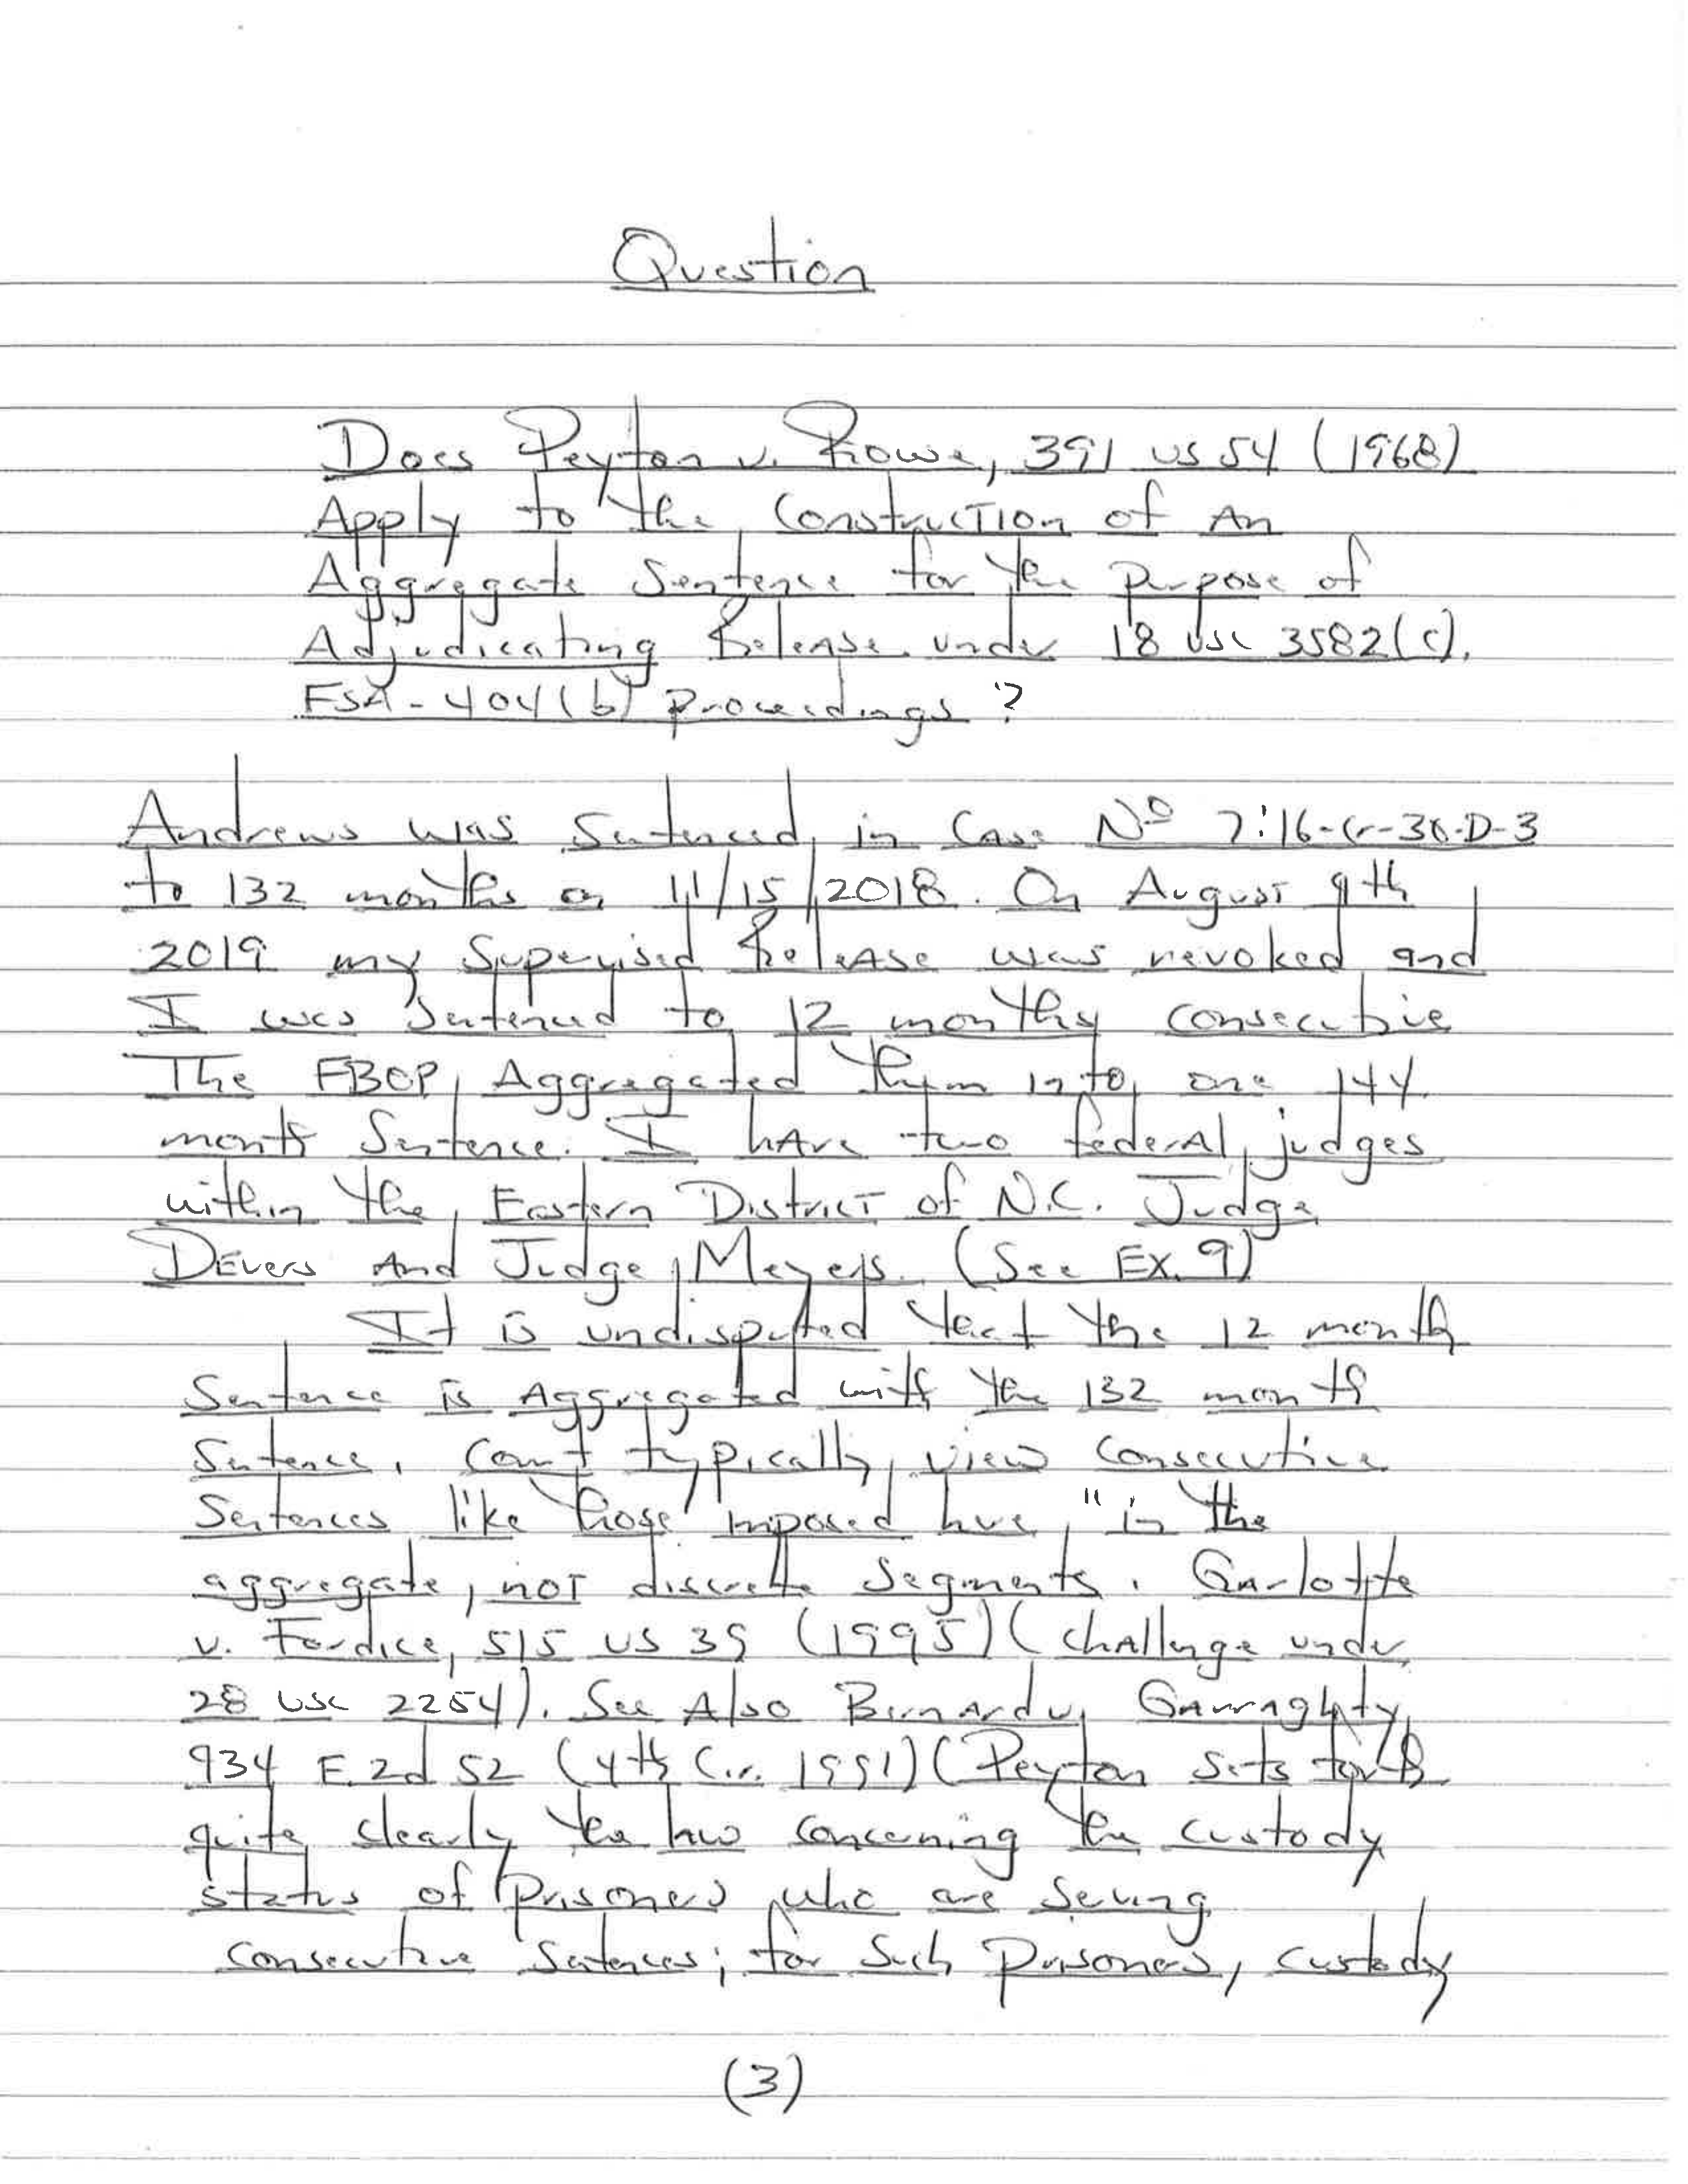 Question
Does Peyton v. Rowe, 391 US 54 (1968)
Apply to the Construction of An
Aggregate Sentence for the Purpose of
Adjudicating Release under 18 USC 3582(c),
FSA-404(b) proceedings?
Andrews was Sentenced in Case Nº 7:16-Cr-30-D-3
to 132 months on 11/15/2018. On August 9th
2019 my Supervised Release was revoked and
I was Sentenced to 12 months consecutive
The FBOP Aggregated them into one 144
month Sentence. I have two federal judges
within the Eastern District of N.C. Judge
DEvers And Judge Meyers. (See Ex. 9)
It is undisputed that the 12 month
Sentence is Aggregated with the 132 month
Sentence. Court typically view consecutive
Sentences like those imposed here, "in the
aggregate, not discrete segments. Garlotte
v. Fordice, 515 US 39 (1995) (challenge under
28 USC 2254). See Also Bernard v. Garraghty,
934 F.2d 52 (4th Cir. 1991) (Peyton sets forth
quite clearly the law concerning the custody
status of prisoners who are serving
consecutive Sentences; for such prisoners, custody
(3)